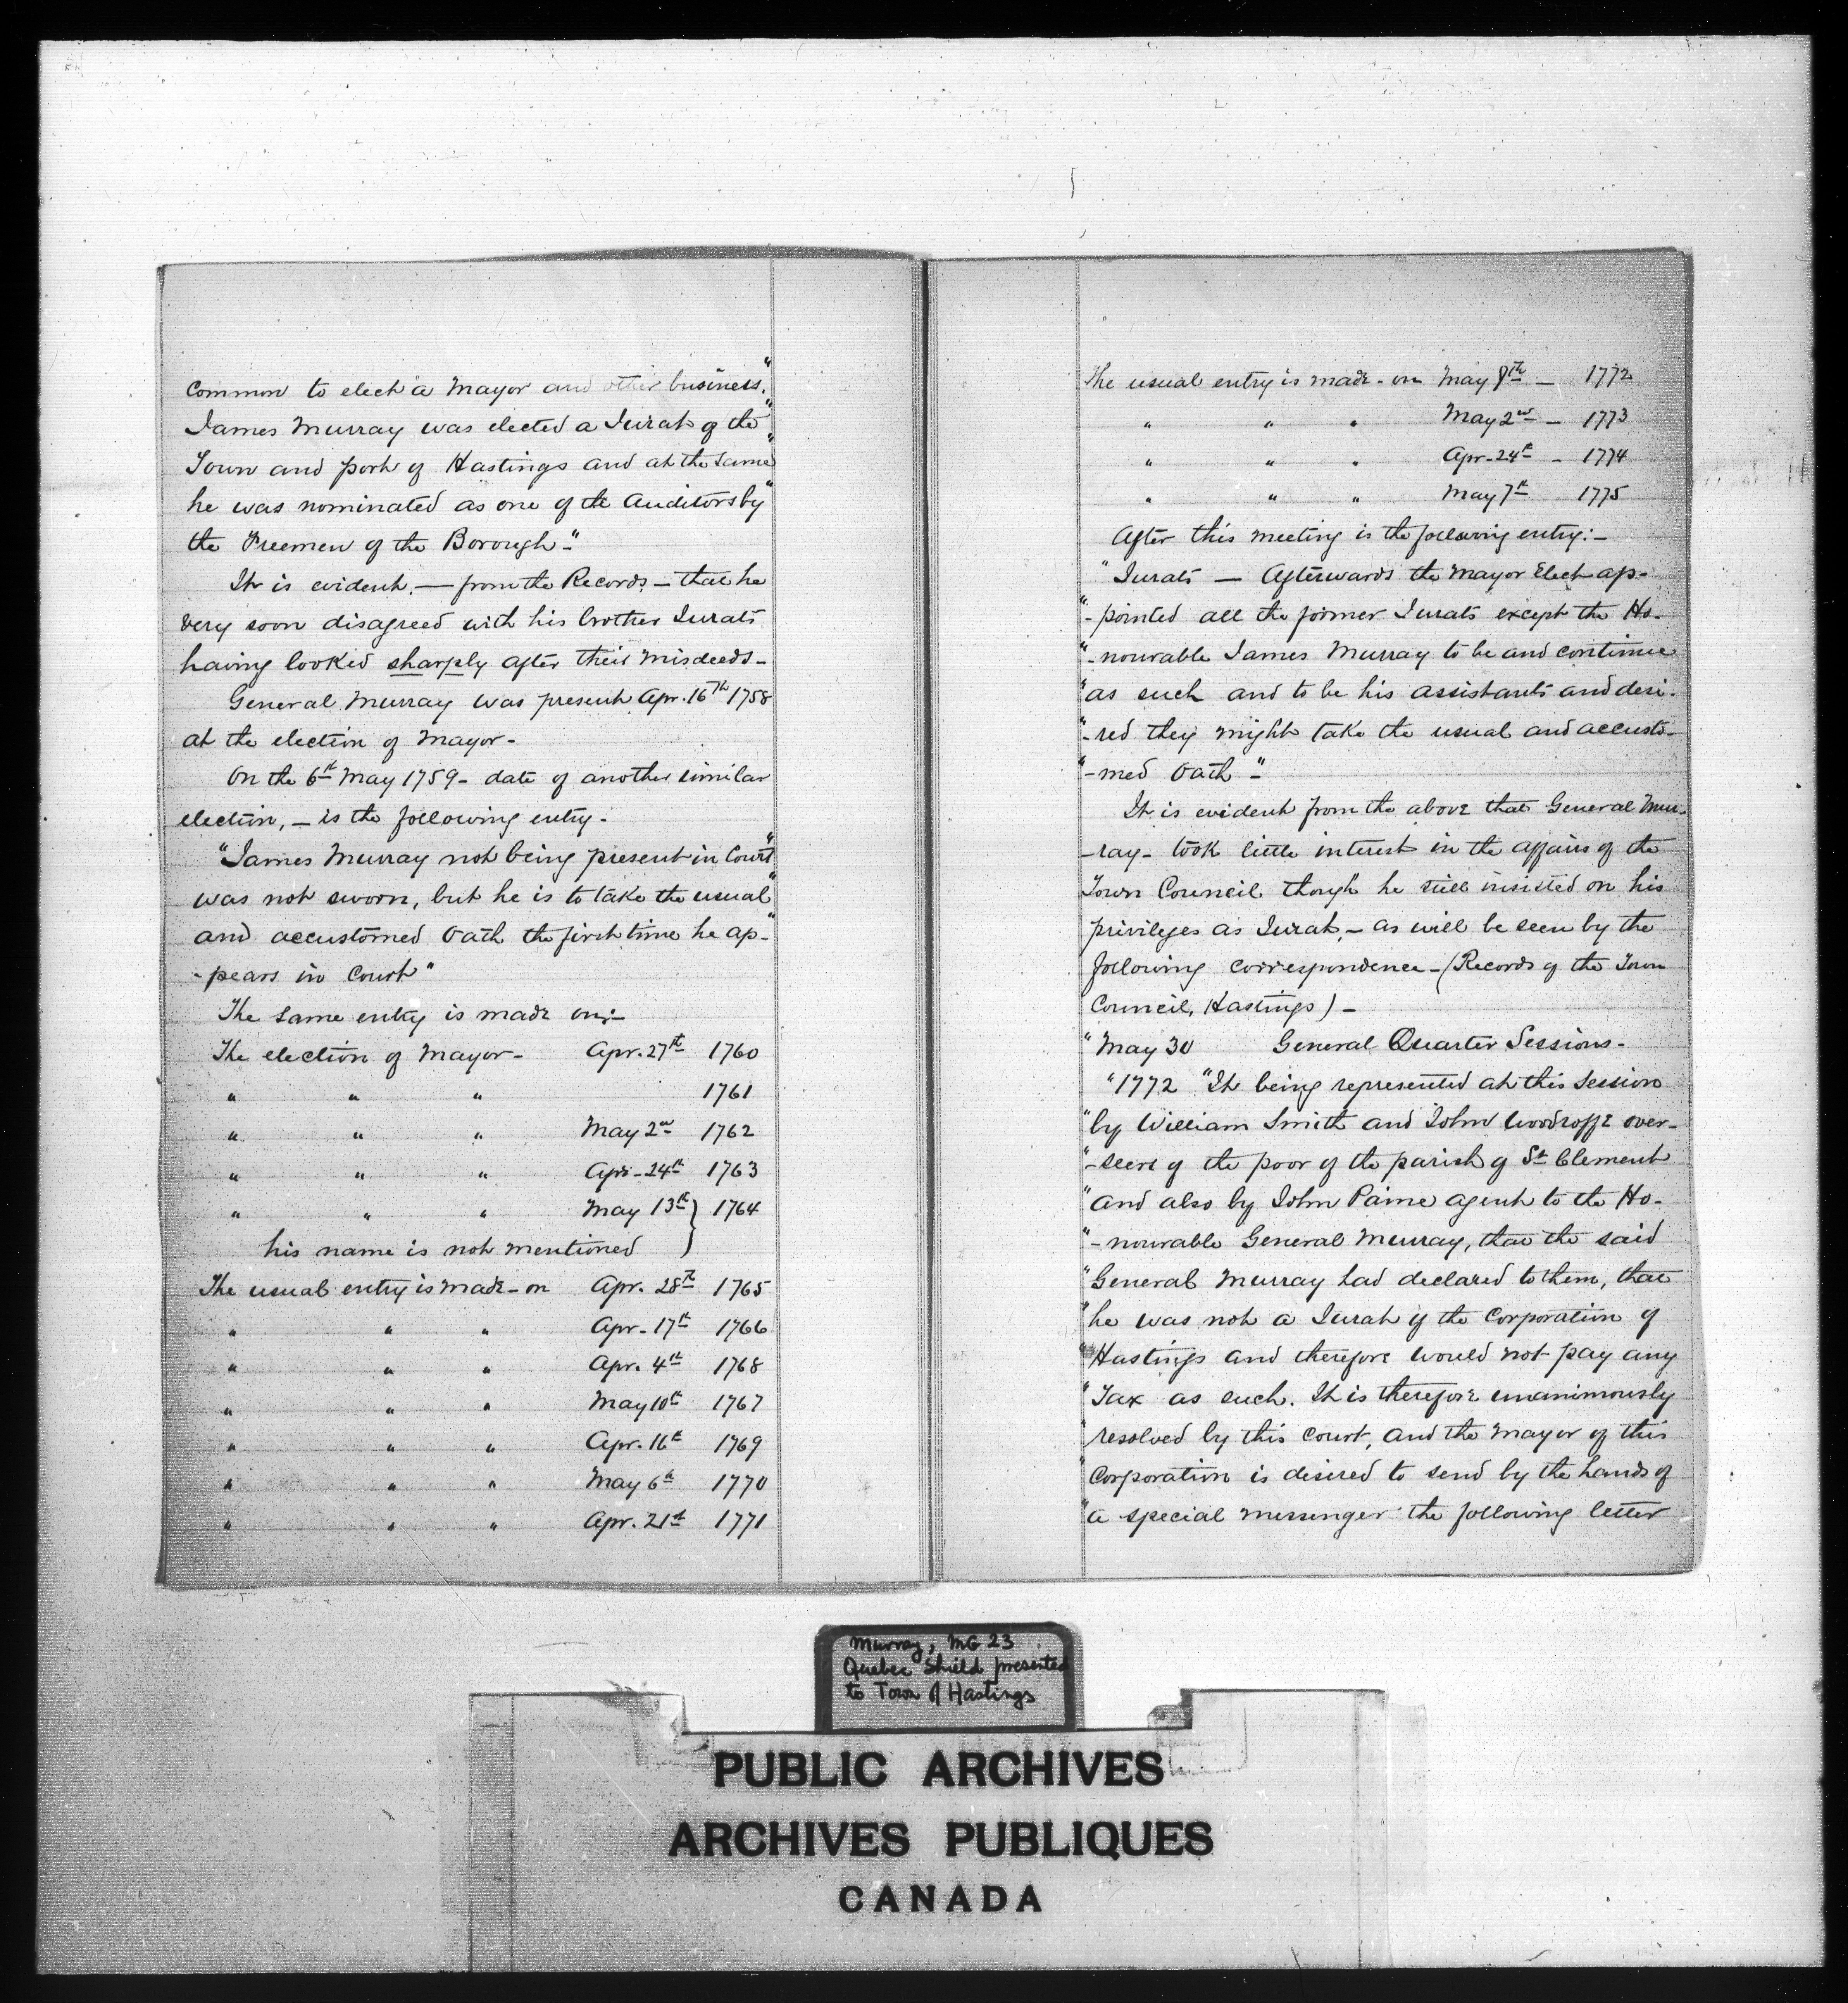 common to elect a Mayor and other business."
James Murray was elected a Jurat of the"
Town and port of Hastings and at the same"
he was nominated as one of the Auditors by"
the Freemen of the Borough."
It is evident, — from the Records, — that he
very soon disagreed with his brother Jurats
having looked sharply after their misdeeds -
General Murray was present Apr. 16th 1758
at the election of Mayor -
On the 6th May 1759 - date of another similar
election, — is the following entry -
"James Murray not being present in Court"
was not sworn, but he is to take the usual"
and accustomed Oath the first time he ap-"
- pears in Court"
The same entry is made on:-
The election of Mayor - Apr. 27th 1760
" " " 1761
" " " May 2nd 1762
" " " Apr - 24th 1763
" " " May 13th } 1764
his name is not mentioned
The usual entry is made - on Apr. 28th 1765
" " " Apr - 17th 1766
" " " Apr. 4th 1768
" " " May 10th 1767
" " " Apr. 16th 1769
" " " May 6th 1770
" " " Apr. 21st 1771
The usual entry is made - on May 8th — 1772
" " " May 2nd — 1773
" " " Apr - 24th - 1774
" " " May 7th 1775
After this meeting is the following entry:-
"Jurats — Afterwards the Mayor Elect ap-
"- pointed all the former Jurats except the Ho-
"- nourable James Murray to be and continue
"as such and to be his assistants and desi-
"- red they might take the usual and accusto-
"- med Oath -"
It is evident from the above that General Mur-
- ray - took little interest in the affairs of the
Town Council though he still insisted on his
privileges as Jurat, - as will be seen by the
following correspondence - (Records of the Town
Council, Hastings) -
"May 30 General Quarter Sessions -
"1772 "It being represented at this Session
"by William Smith and John Woodroffe over-
"- seers of the poor of the parish of St Clement
"and also by John Paine agent to the Ho-
"- nourable General Murray, that the said
"General Murray had declared to them, that
"he was not a Jurat of the Corporation of
"Hastings and therefore would not pay any
"Tax as such. It is therefore unanimously
"resolved by this Court, and the Mayor of this
"Corporation is desired to send by the hands of
"a special messenger the following letter
Murray, MG 23
Quebec Shield presented
to Town of Hastings
PUBLIC ARCHIVES
ARCHIVES PUBLIQUES
CANADA